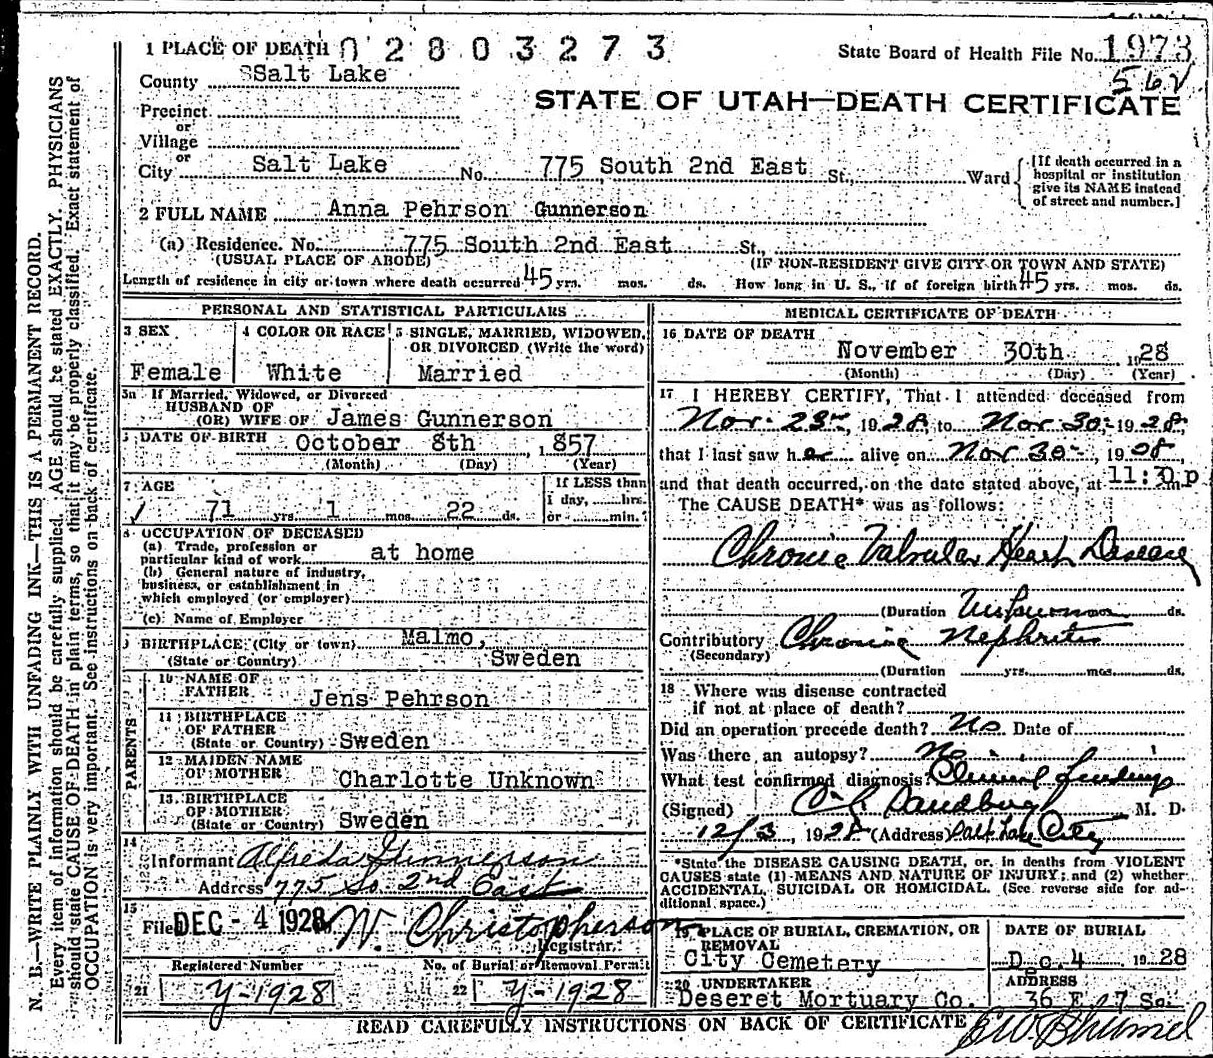 1 PLACE OF DEATH 02803273
State Board of Health File No. 1973
562
County Salt Lake
STATE OF UTAH—DEATH CERTIFICATE
Precinct
or
Village
or
City Salt Lake No. 775 South 2nd East St., Ward
[If death occurred in a hospital or institution give its NAME instead of street and number.]
2 FULL NAME Anna Pehrson Gunnerson
(a) Residence. No. 775 South 2nd East St.,
(USUAL PLACE OF ABODE) (IF NON-RESIDENT GIVE CITY OR TOWN AND STATE)
Length of residence in city or town where death occurred 45 yrs. mos. ds. How long in U. S., if of foreign birth 45 yrs. mos. ds.
PERSONAL AND STATISTICAL PARTICULARS
3 SEX
Female
4 COLOR OR RACE
White
5 SINGLE, MARRIED, WIDOWED, OR DIVORCED (Write the word)
Married
5a If Married, Widowed, or Divorced
HUSBAND OF
(OR) WIFE OF James Gunnerson
DATE OF BIRTH October 8th, 1857
(Month) (Day) (Year)
7 AGE
71 yrs. 1 mos. 22 ds.
If LESS than
1 day, hrs.
or min.?
8 OCCUPATION OF DECEASED
(a) Trade, profession or
particular kind of work at home
(b) General nature of industry,
business, or establishment in
which employed (or employer)
(c) Name of Employer
9 BIRTHPLACE (City or town) Malmo,
(State or Country) Sweden
PARENTS
10 NAME OF
FATHER Jens Pehrson
11 BIRTHPLACE
OF FATHER
(State or Country) Sweden
12 MAIDEN NAME
OF MOTHER Charlotte Unknown
13 BIRTHPLACE
OF MOTHER
(State or Country) Sweden
14
Informant Alfreda Gunnerson
Address 775 So 2nd East
15
Filed DEC - 4 1928 W. Christopherson
Registrar.
Registered Number No. of Burial or Removal Permit
21 Y-1928 22 Y-1928
MEDICAL CERTIFICATE OF DEATH
16 DATE OF DEATH
November 30th 1928
(Month) (Day) (Year)
17 I HEREBY CERTIFY, That I attended deceased from
Nov. 23rd, 1928, to Nov 30, 1928,
that I last saw her alive on Nov 30, 1928,
and that death occurred, on the date stated above, at 11:30 p m
The CAUSE DEATH* was as follows:
Chronic Valvular Heart Disease
(Duration Unknown ds.
Contributory Chronic Nephritis
(Secondary)
(Duration yrs. mos. ds.
18 Where was disease contracted
if not at place of death?
Did an operation precede death? No Date of
Was there an autopsy? No
What test confirmed diagnosis? Clinical findings
(Signed) Sandbergh M. D.
12/3, 1928 (Address) Salt Lake City
*State the DISEASE CAUSING DEATH, or, in deaths from VIOLENT
CAUSES state (1) MEANS AND NATURE OF INJURY; and (2) whether
ACCIDENTAL, SUICIDAL OR HOMICIDAL. (See reverse side for additional space.)
19 PLACE OF BURIAL, CREMATION, OR
REMOVAL
City Cemetery
DATE OF BURIAL
Dec. 4 1928
20 UNDERTAKER
Deseret Mortuary Co.
ADDRESS
36 E 7 So.
READ CAREFULLY INSTRUCTIONS ON BACK OF CERTIFICATE
N. B.—WRITE PLAINLY WITH UNFADING INK—THIS IS A PERMANENT RECORD.
Every item of information should be carefully supplied. AGE should be stated EXACTLY. PHYSICIANS
should state CAUSE OF DEATH in plain terms, so that it may be properly classified. Exact statement of
OCCUPATION is very important. See instructions on back of certificate.